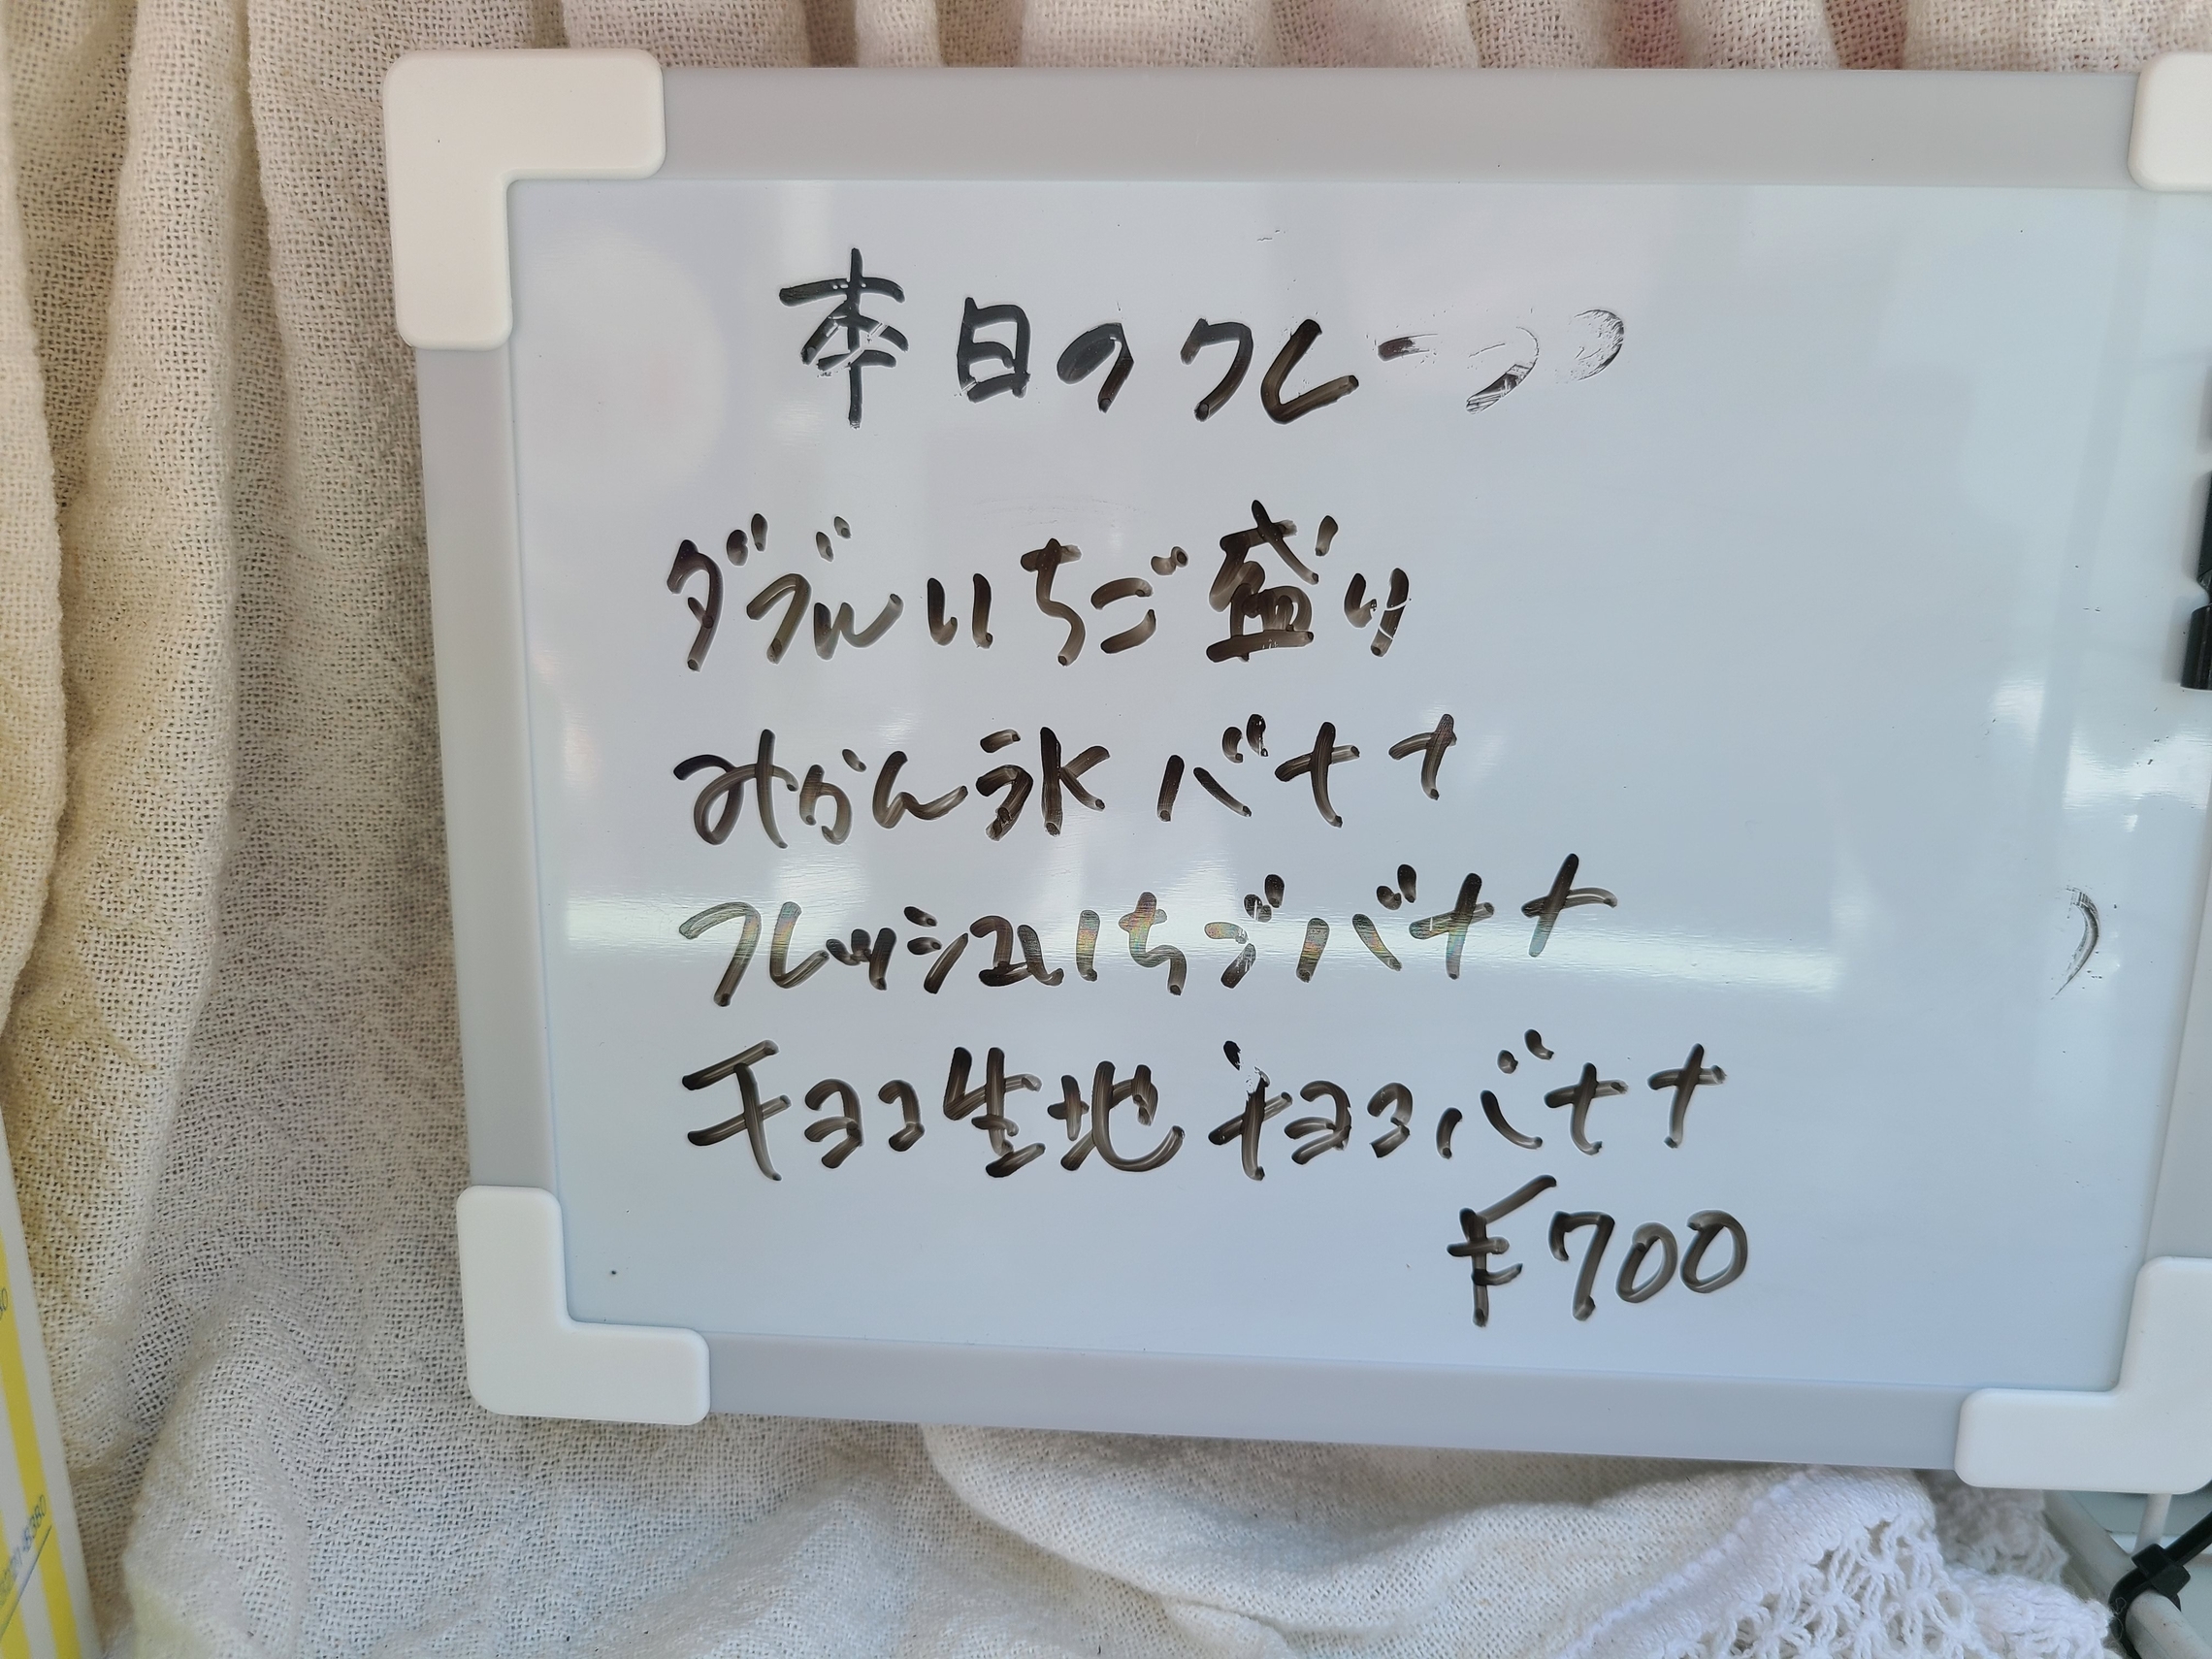 本日のクレー
ダブルいちご盛り
みかん氷バナナ
フレッシュいちごバナナ
チョコ生地チョコバナナ
¥700